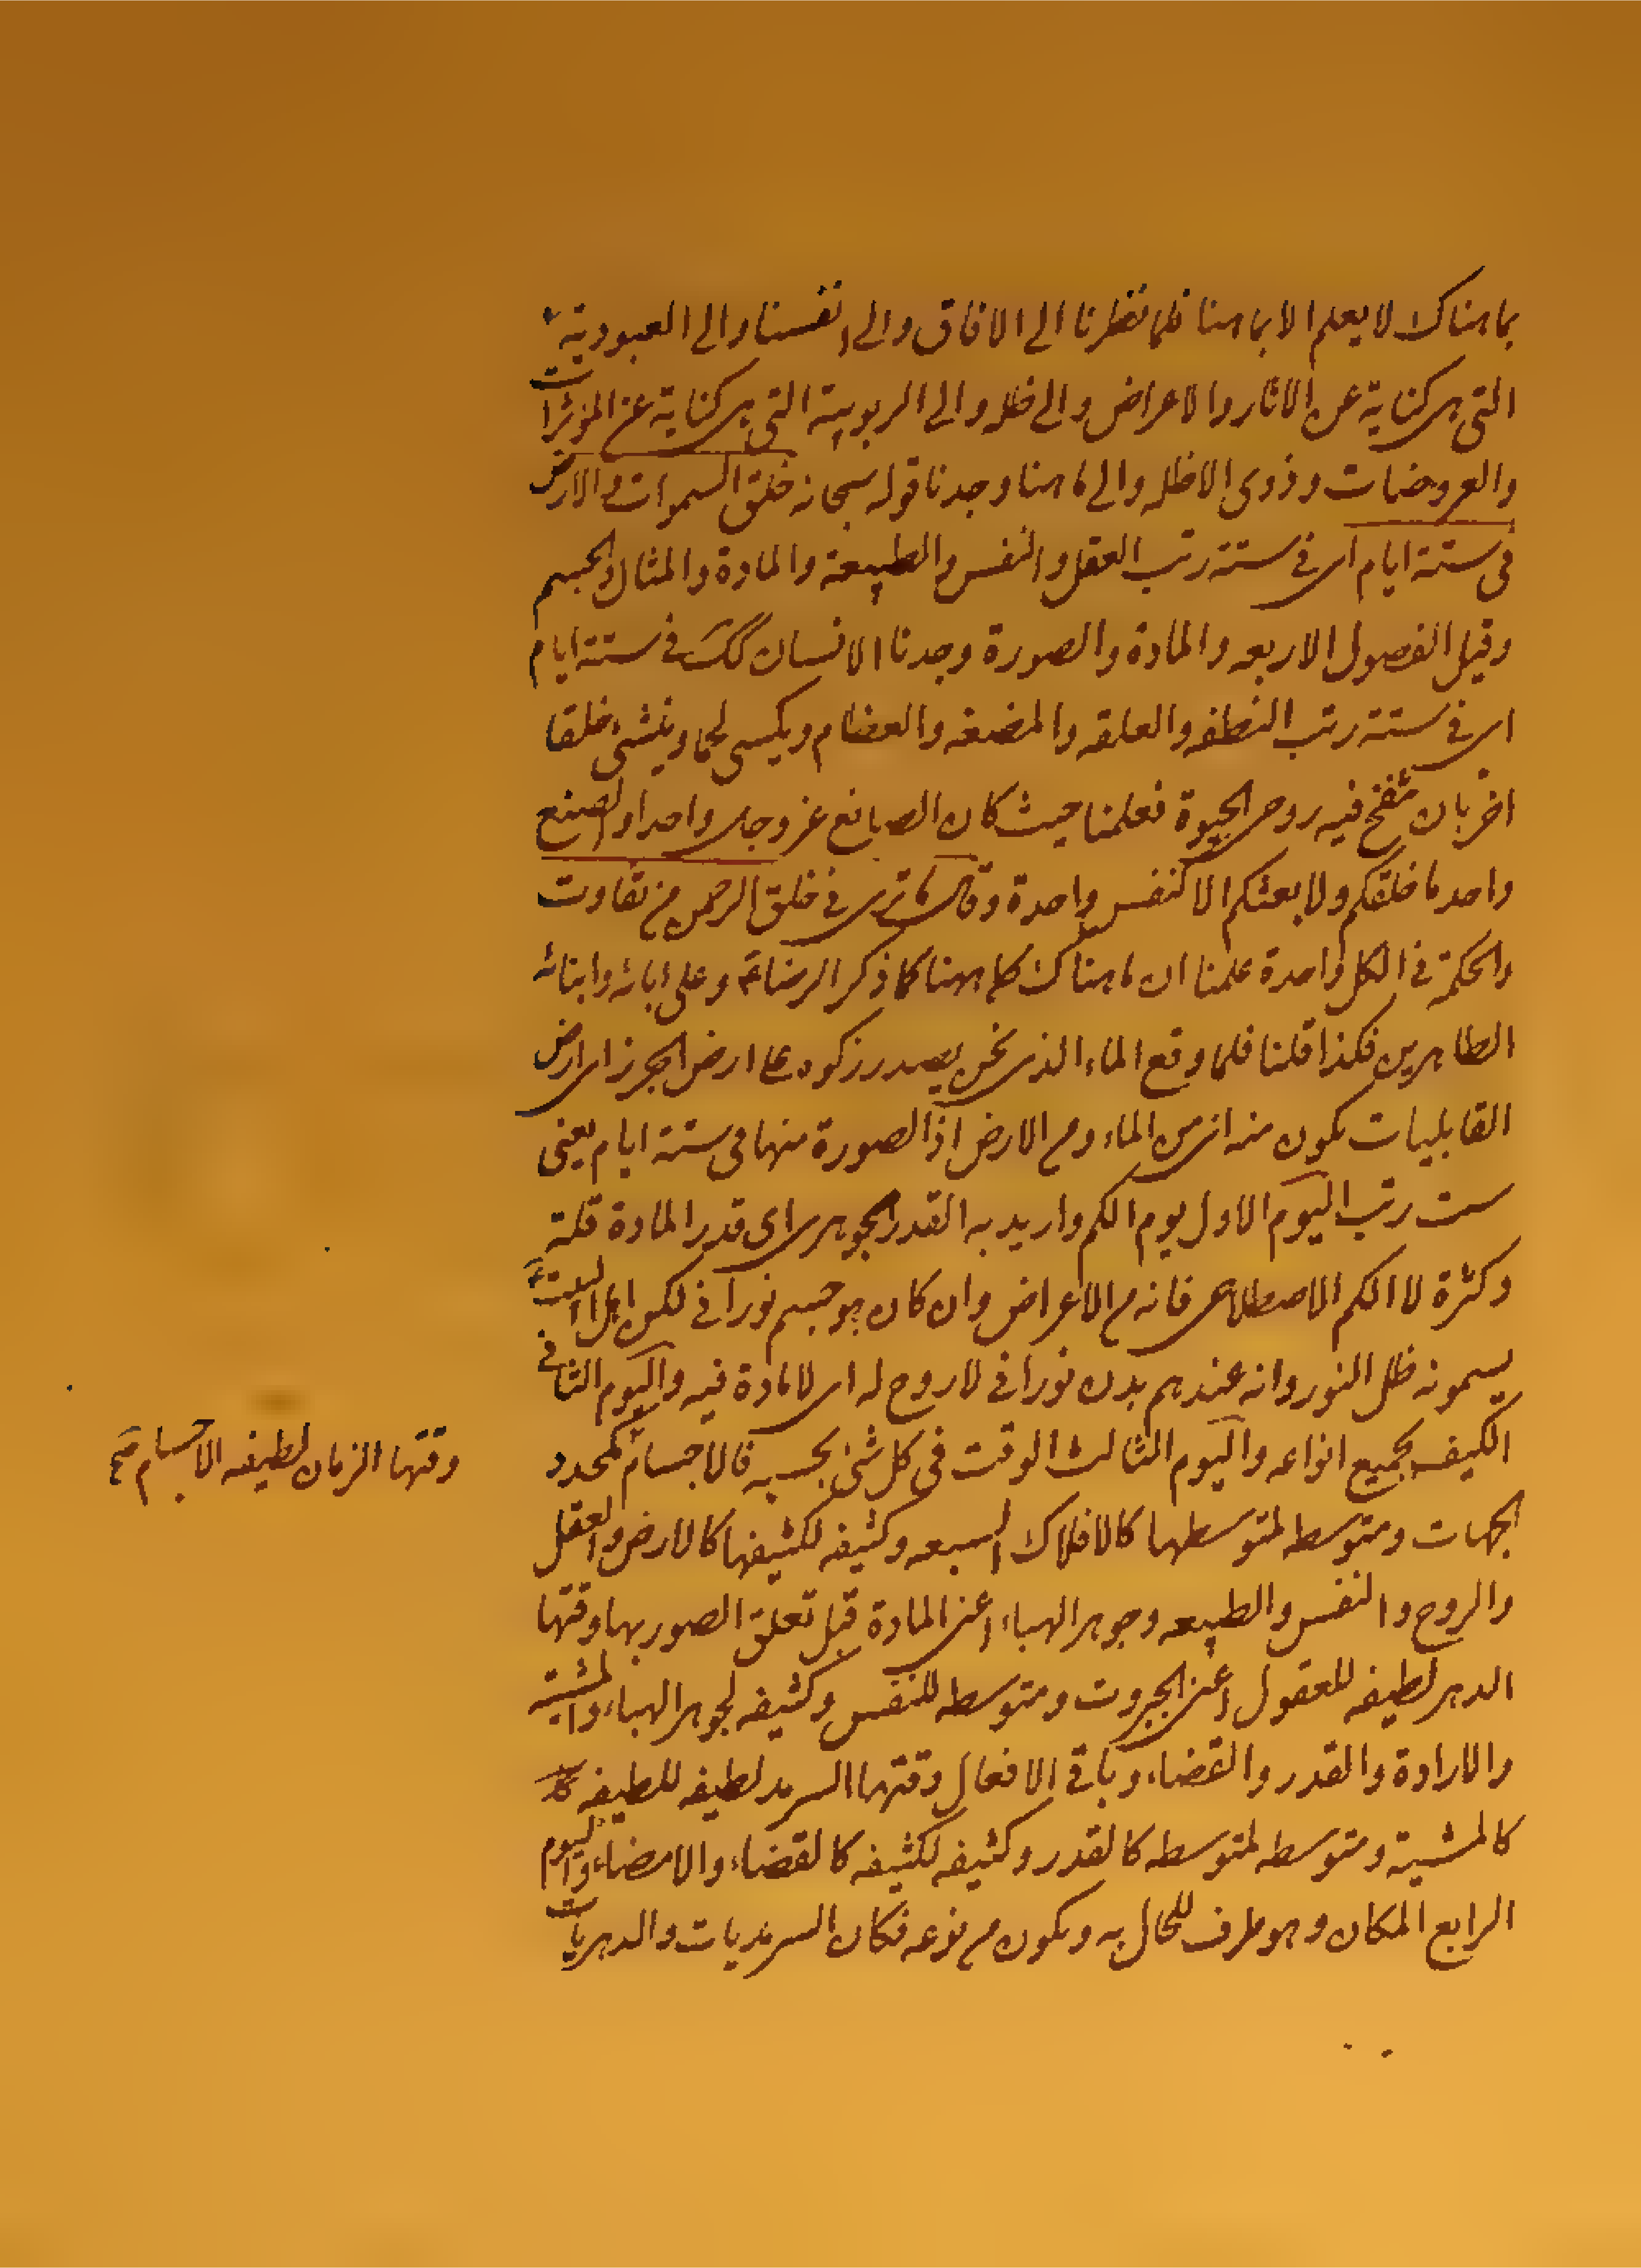 بما هناك لا يعلم الا بما هنا فلما نظرنا الى الافاق والى انفسنا والى العبودية
التى هى كناية عن الاثار والاعراض والى ظله والى الربوبية التى هى كناية عن المؤثرات
والعروضات وذوى الاظله والى ما هنا وجدنا قوله سبحانه خلق السموات والارض
فى ستة ايام اى فى ستة رتب العقل والنفس والطبيعة والمادة والمثال والجسم
وقيل الفصول الاربعه والمادة والصورة وجدنا الانسان كك فى ستة ايام
اى فى ستة رتب النطفه والعلقه والمضغه والعظام ويكسى لحما وينشئ خلقا
اخر بان ينفخ فيه روح الحيوة فعلمنا حيث كان الصانع عز وجل واحدا والصنع
واحد ما خلقكم ولا بعثكم الا كنفس واحدة وقال ما ترى فى خلق الرحمن من تفاوت
والحكمة فى الكل واحدة علمنا ان ما هناك كما ههنا كما ذكر الرضا ع وعلى ابائه وابنائه
الطاهرين فكذا قلنا فلما وقع الماء الذى نحن بصدد ذكره على ارض الجرز اى ارض
القابليات تكون منه اى من الماء ومن الارض اذ الصورة منها فى ستة ايام يعنى
ست رتب اليوم الاول يوم الكم واريد به القدر الجوهرى اى قدر المادة قلة
وكثرة لا الكم الاصطلاحى فانه من الاعراض وان كان هو جسم نورانى لكن اهل البيت ع
يسمونه ظل النور وانه عندهم بدن نورانى لا روح له اى لا مادة فيه واليوم الثانى
الكيف بجميع انواعه واليوم الثالث الوقت فى كل شئ بحسبه فالاجسام كمحدد
وقتها الزمان لطيفه الاجسام صح
الجهات ومتوسطه لمتوسطها كالافلاك السبعه وكثيفه لكثيفها كالارض والعقل
والروح والنفس والطبيعه وجوهر الهباء اعنى المادة قبل تعلق الصور بها وقتها
الدهر لطيفه للعقول اعنى الجبروت ومتوسطه للنفس وكثيفه لجوهر الهباء والمشية
والارادة والقدر والقضاء وباقى الافعال وقتها السرمد لطيفه للطيفه
كالمشية ومتوسطه لمتوسطه كالقدر وكثيفه لكثيفه كالقضاء والامضاء واليوم
الرابع المكان وهو ظرف للحال به ويكون من نوعه فكان السرمديات والدهريات